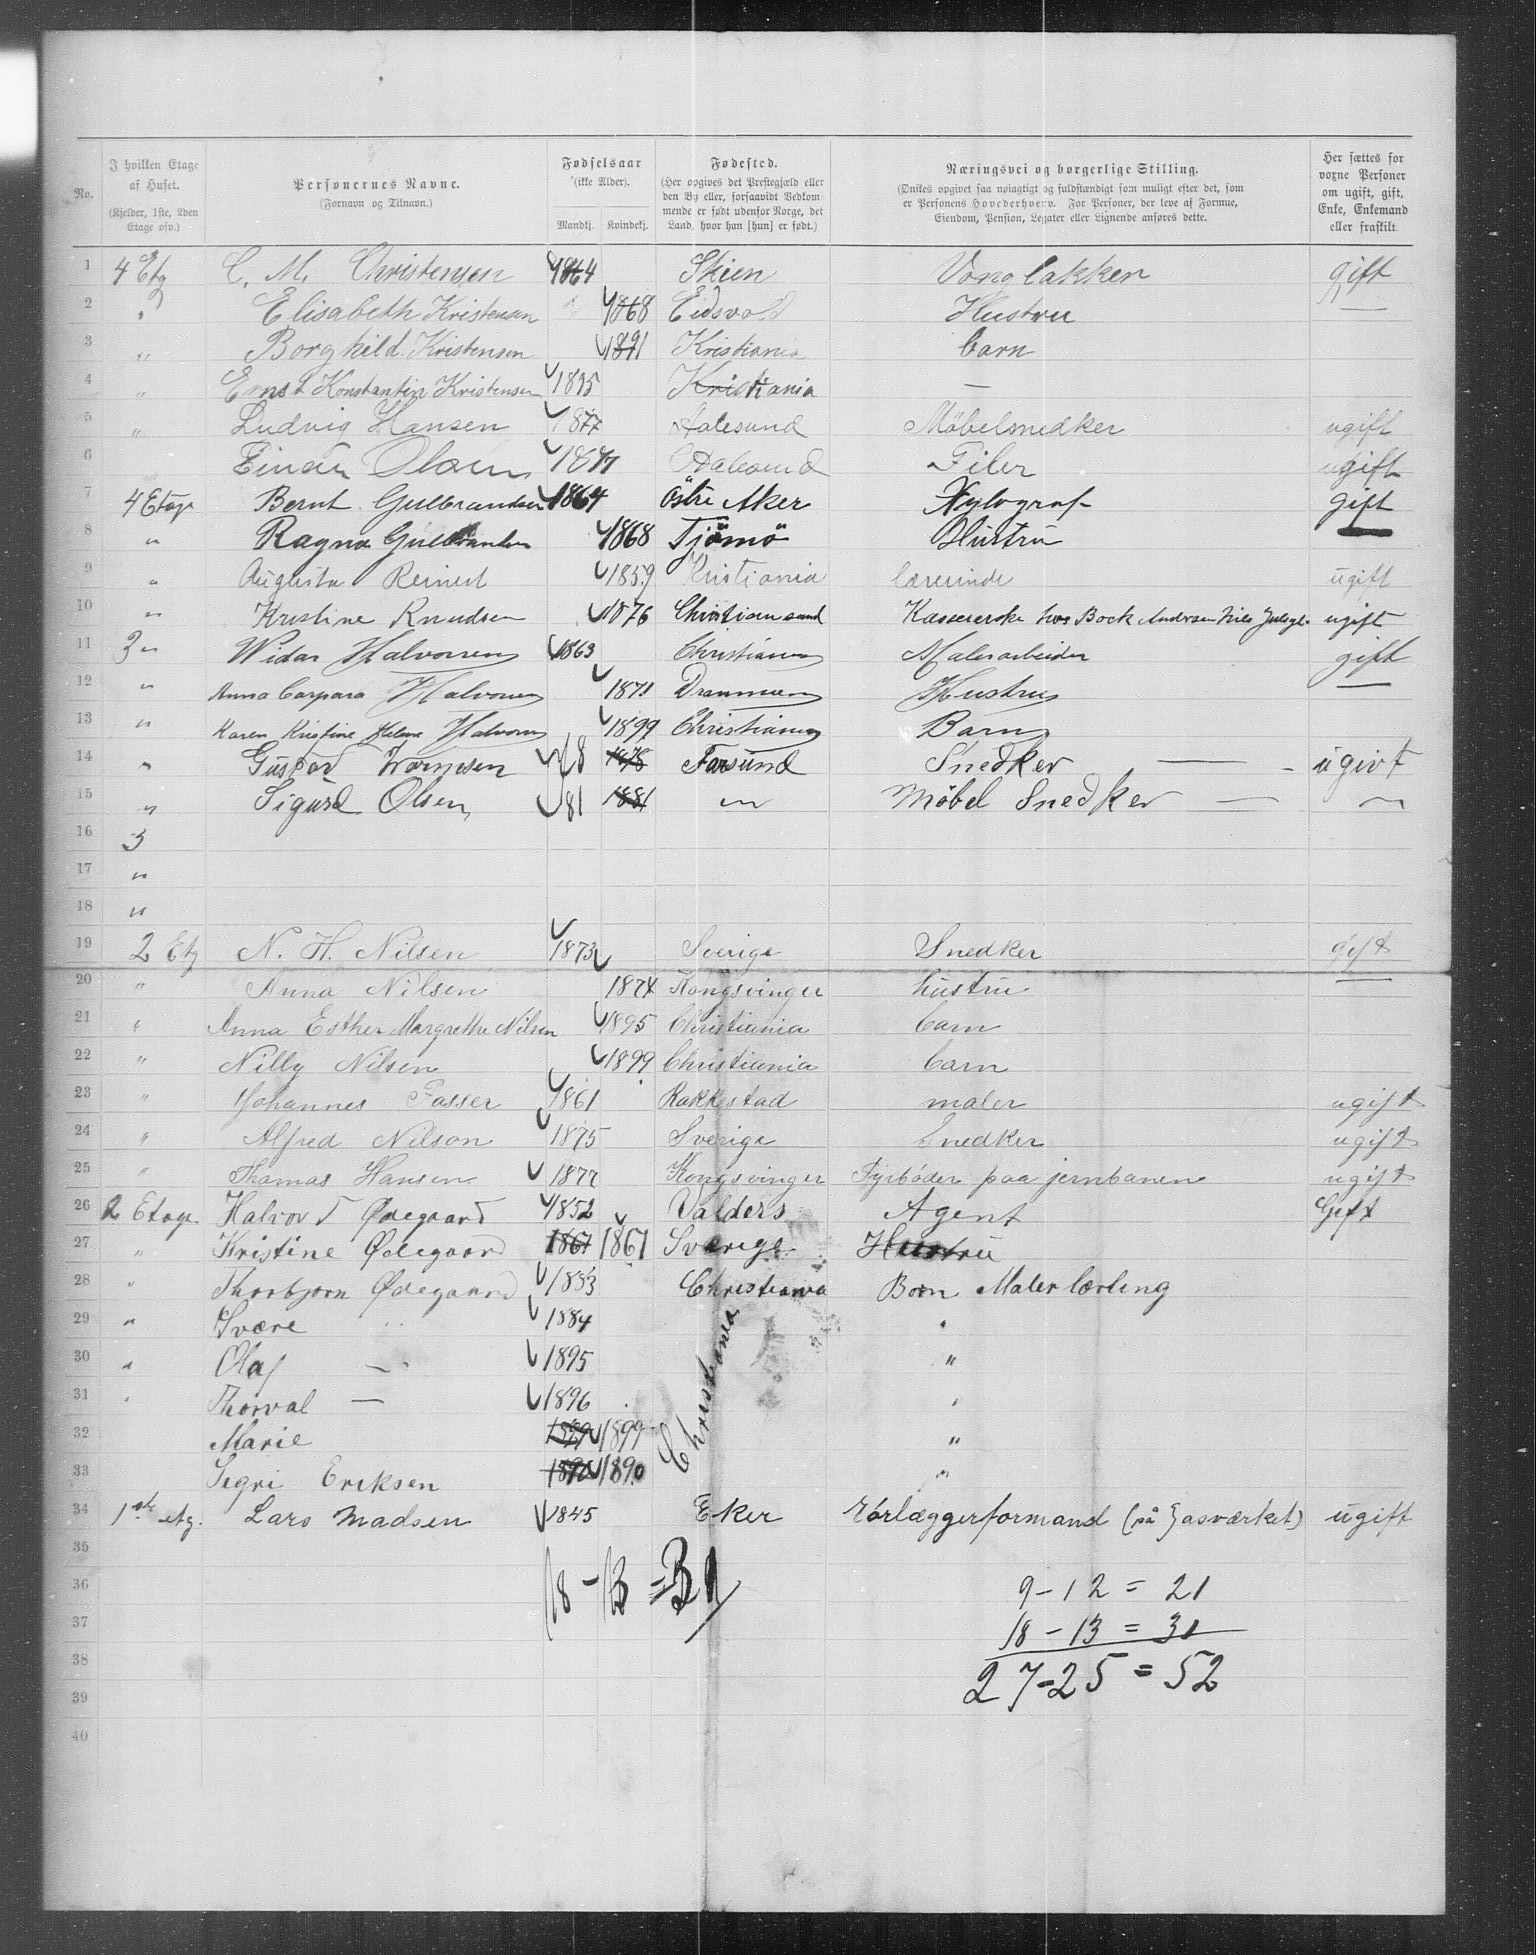 No.
I hvilken Etage af Huset. (Kjelder, 1ste, 2den Etage osv.)
Personernes Navne. (Fornavn og Tilnavn.)
Fødselsaar (ikke Alder). Mandkj. Kvindekj.
Fødested. (Her opgives det Prestegjæld eller den By eller, forsaavidt Vedkommende er født udenfor Norge, det Land, hvor han [hun] er født.)
Næringsvei og borgerlige Stilling. (Ønskes opgivet saa nøiagtigt og fuldstændigt som muligt efter det, som er Personens Hovederhverv. For Personer, der leve af Formue, Eiendom, Pension, Legater eller Lignende anføres dette.
Her sættes for voxne Personer om ugift, gift, Enke, Enkemand eller fraskilt.
1 4 Etg C. M. Christensen 1864 Skien Vognlakker gift
2 " Elisabeth Kristensen 1868 Eidsvold Hustru —
3 " Borghild Kristensen 1891 Kristiania barn
4 " Ernst Konstantin Kristensen 1895 Kristiania —
5 " Ludvig Hansen 1877 Aalesund Möbelsnedker ugift
6 Einar Olsen 1877 Aalesund Filer ugift
7 4 Etage Bernt Gulbrandsen 1864 Östre Aker Xylograf gift
8 " Ragna Gulbrandsen 1868 Tjömö Hustru —
9 " Augusta Reinert 1859 Kristiania lærerinde ugift
10 " Kristine Knudsen 1876 Christiansand Kassererske hos Bock Andersen Nils ugift
11 3 " Widar Halvorsen 1863 Christiania Malerarbeider gift
12 " Anna Caspara Halvorsen 1871 Drammen Hustru —
13 " Karen Kristine Helene Halvorsen 1899 Christiania Barn
14 " Gustav 78 1878 Farsund Snedker — ugivt
15 " Sigurd Olsen 81 1881 " Möbel Snedker — "
16 3
17 "
18 "
19 2 Etg N. H. Nilsen 1873 Sverige Snedker gift
20 " Anna Nilsen 1874 Kongsvinger hustru —
21 " Anna Esther Margrethe Nilsen 1895 Christiania barn
22 " Nilly Nilsen 1899 Christiania barn
23 " Johannes Fosser 1861 Rakkestad maler ugift
24 " Alfred Nilson 1875 Sverige Snedker ugift
25 " Thomas Hansen 1877 Kongsvinger Fyrbøder paa jernbanen ugift
26 2 Etage Halvord Ødegaard 1852 Valders Agent Gift
27 " Kristine Ødegaard 1861 1861 Sverige Hustru
28 " Thorbjørn Ødegaard 1883 Christiania Born Maler lærling
29 " Svære 1884 "
30 " Olaf — 1895 "
31 " Thorval — 1896 "
32 Marie 1899 1899 "
33 Segri Eriksen 1890 1890 "
Christiania
34 1ste etg. Lars Madsen 1845 Eker rörlæggerformand (på Gasværket) ugift
35
36 18 – 13 = 31 9 – 12 = 21
37 18 – 13 = 31
38 27 – 25 = 52
39
40